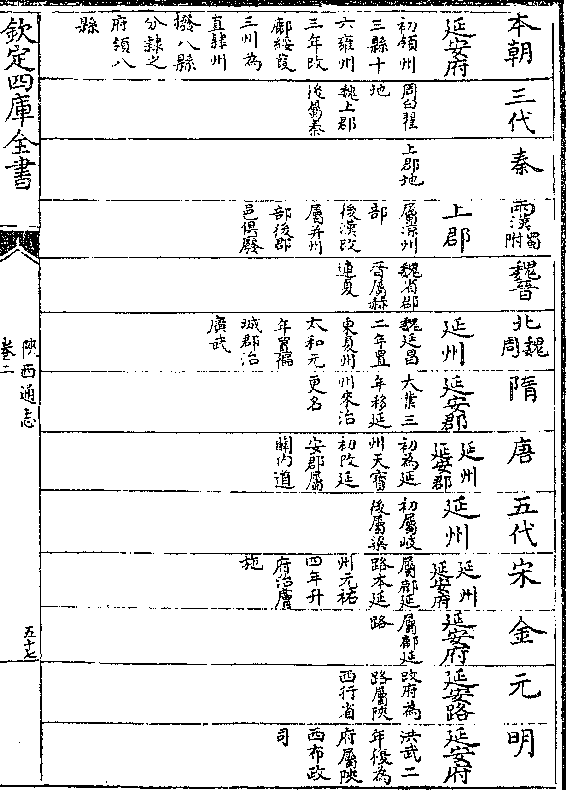 本朝
延安府
初領州
三縣十
六雍州
三年改
鄜綏葭
三州為
直肆州
撥八縣
分隸之
府領八
縣
三代
周白翟
地
魏上郡
後屬秦
秦
上郡地
兩漢蜀附
上郡
屬涼州
部
後漢改
屬并州
部後郡
邑俱廢
魏晉
魏省郡
晉屬赫
連夏
北魏周
延州
魏延昌
二年置
東夏州
太和元
年置徧
城郡治
廣武
隋
延安郡
大業三
年移延
州來治
更名
唐
延州
延安郡
初為延
州天寶
初改延
安郡屬
關内道
五代
延州
初屬岐
後屬梁
宋
延州
延安府
屬鄜延
路本延
州元祐
四年升
府治膚
施
金
延安府
屬鄜延
路
元
延安路
改府為
路屬陝
西行省
明
延安府
洪武二
年復為
府屬陝
西布政
司
欽定四庫全書
陝西通志
卷
五十七